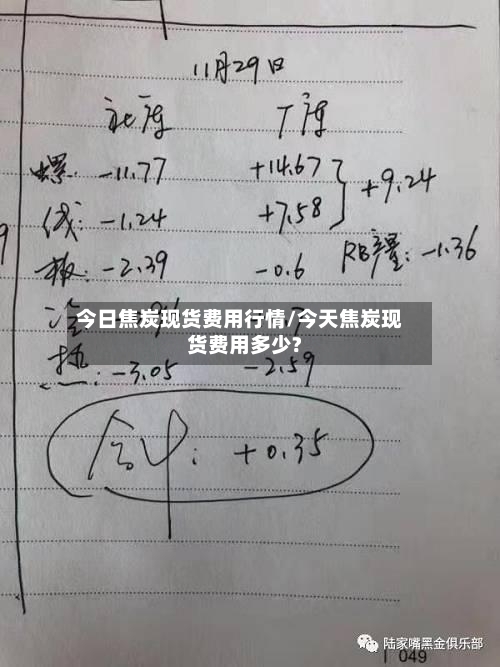 11月29日
社库 厂库
螺: -11.77 +14.67 } +9.24
线: -1.24 +7.58
板: -2.39 -0.6 RB产量: -1.36
冷
今日焦炭现货费用行情/今天焦炭现
货费用多少?
热: -3.05 -2.59
合计: +0.35
陆家嘴黑金俱乐部
049